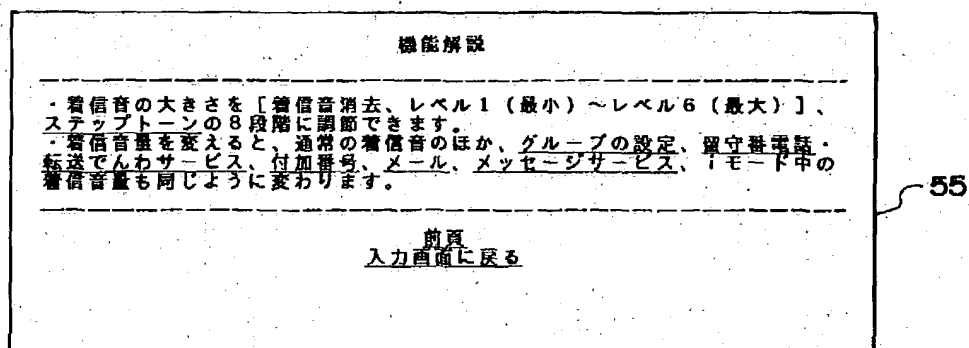 機能解説
・着信音の大きさを[着信音消去、レベル1(最小)~レベル6(最大)]、
ステップトーンの8段階に調節できます。
・着信音量を変えると、通常の着信音のほか、グループの設定、留守番電話・
転送でんわサービス、付加番号、メール、メッセージサービス、iモード中の
着信音量も同じように変わります。
前頁
入力画面に戻る
55